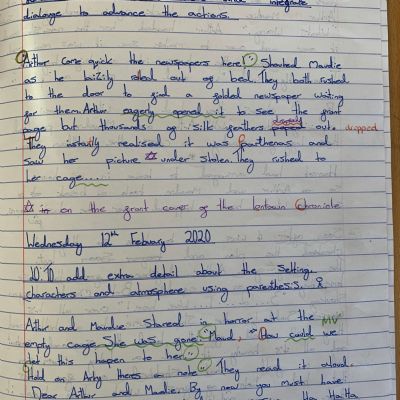 integrate
dialogue to advance the actions.
Arthur Come quick the newspapers here! Shouted Maudie
as he out of bed. They both rushed
to the door to find a folded newspaper waiting
for them. Arthur eagerly opened it to see the front
page but thousands of silk feathers out. dropped
They instantly realised it was Parthenas and
saw her picture ☆ under stolen. They rushed to
her cage....
☆ on the front cover of the Lontown Chronicle
Wednesday 12th Febuary 2020
LO: To add extra detail about the setting,
characters and atmosphere using parenthesis.
Athur and Maudie Stared in horror at the MV
empty cage. She was gone. "Maud, How could we
let this happen to her."
Hold on Arty theres a note. They read it aloud.
Dear Arthur and Maudie. By now you must have
Ha Ha Ha